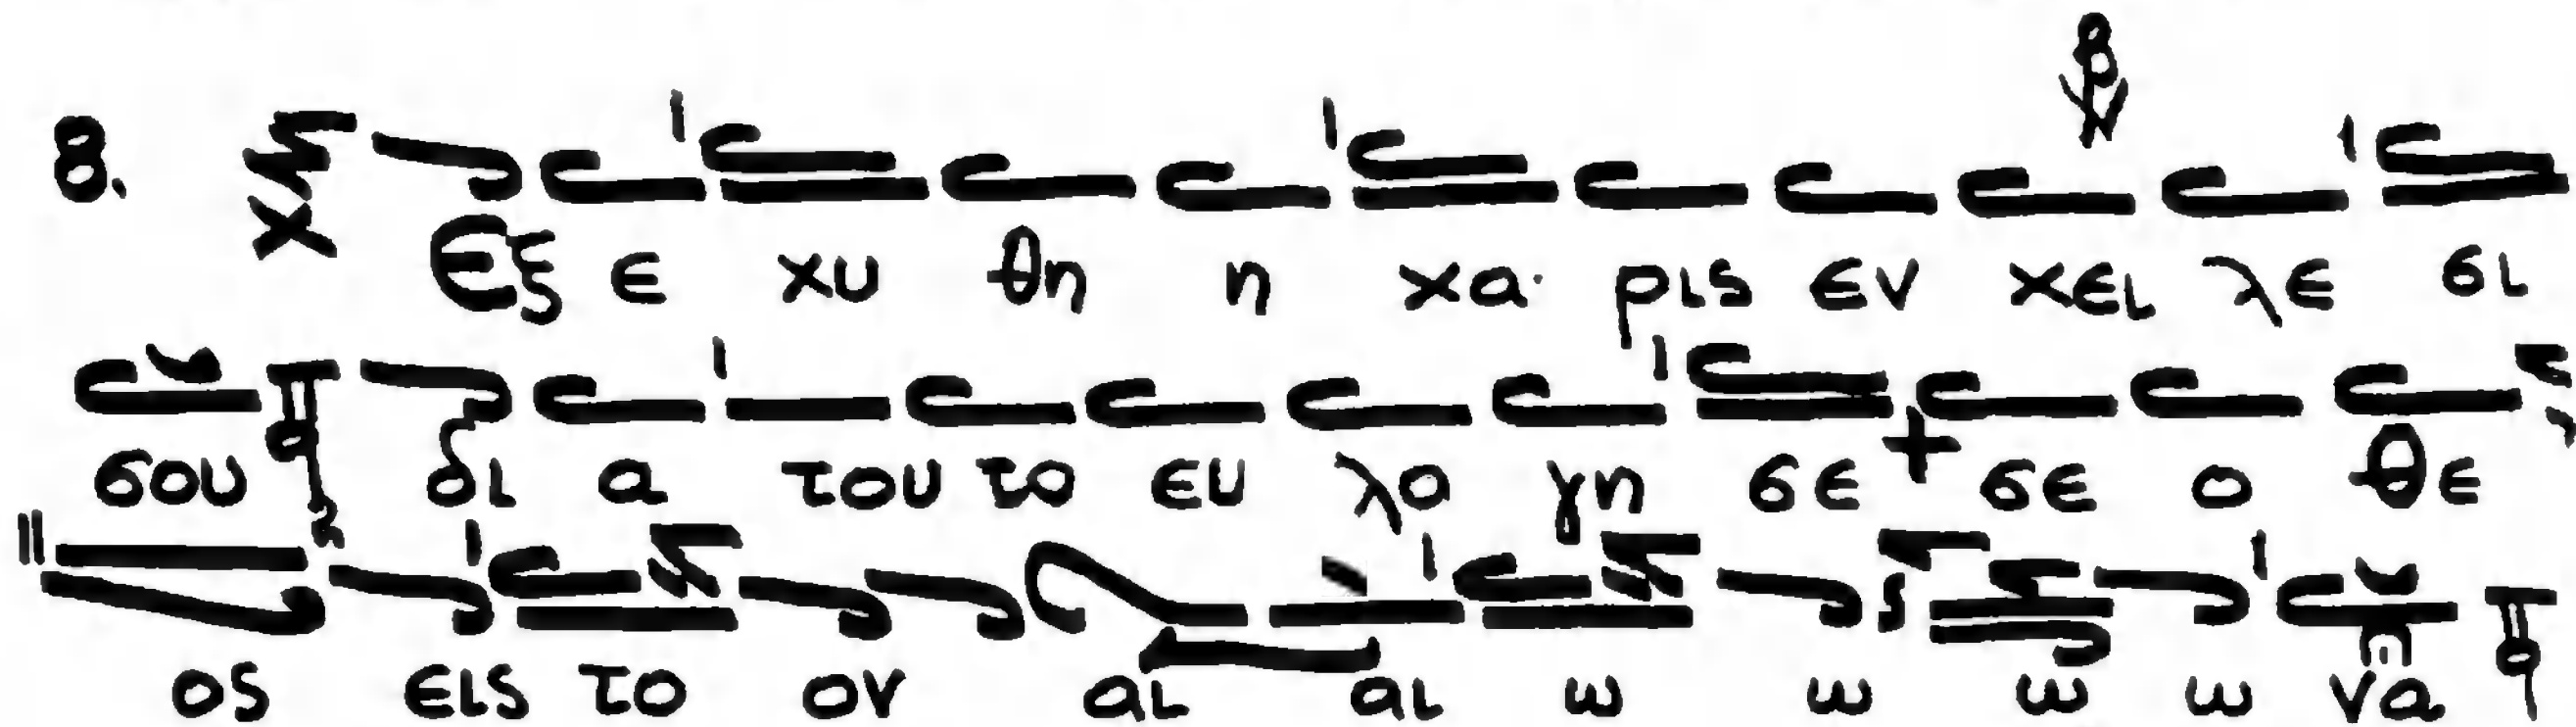 8. Εξ ε χυ θη η χα ρις εν χει λε σι
σου δι α του το ευ λο γη σε + σε ο θε
ος εις το ον αι αι ω ω ω ω να